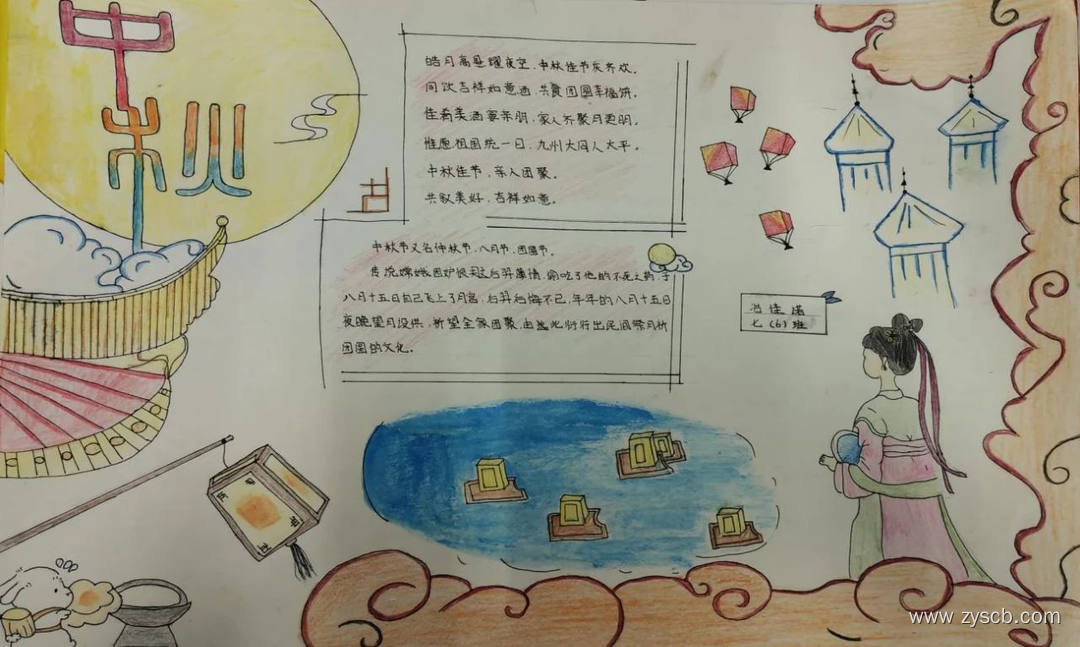 中秋
皓月高悬耀夜空，中秋佳节庆齐欢。
同饮吉祥如意酒，共食团圆幸福饼。
佳肴美酒宴亲朋，家人齐聚月更明。
惟愿祖国统一日，九州大同人太平。
中秋佳节，亲人团聚。
共叙美好，吉祥如意。
中秋节又名仲秋节，八月节，团圆节。
传说嫦娥因后羿薄情，偷吃了他的不死之药，于
八月十五日自己飞上了月宫，后羿后悔不已，年年的八月十五日
夜晚望月设供，祈望全家团聚，由此衍行出民间祭月祈
团圆的文化。
冯佳诺
七（6）班
www.zyscb.com